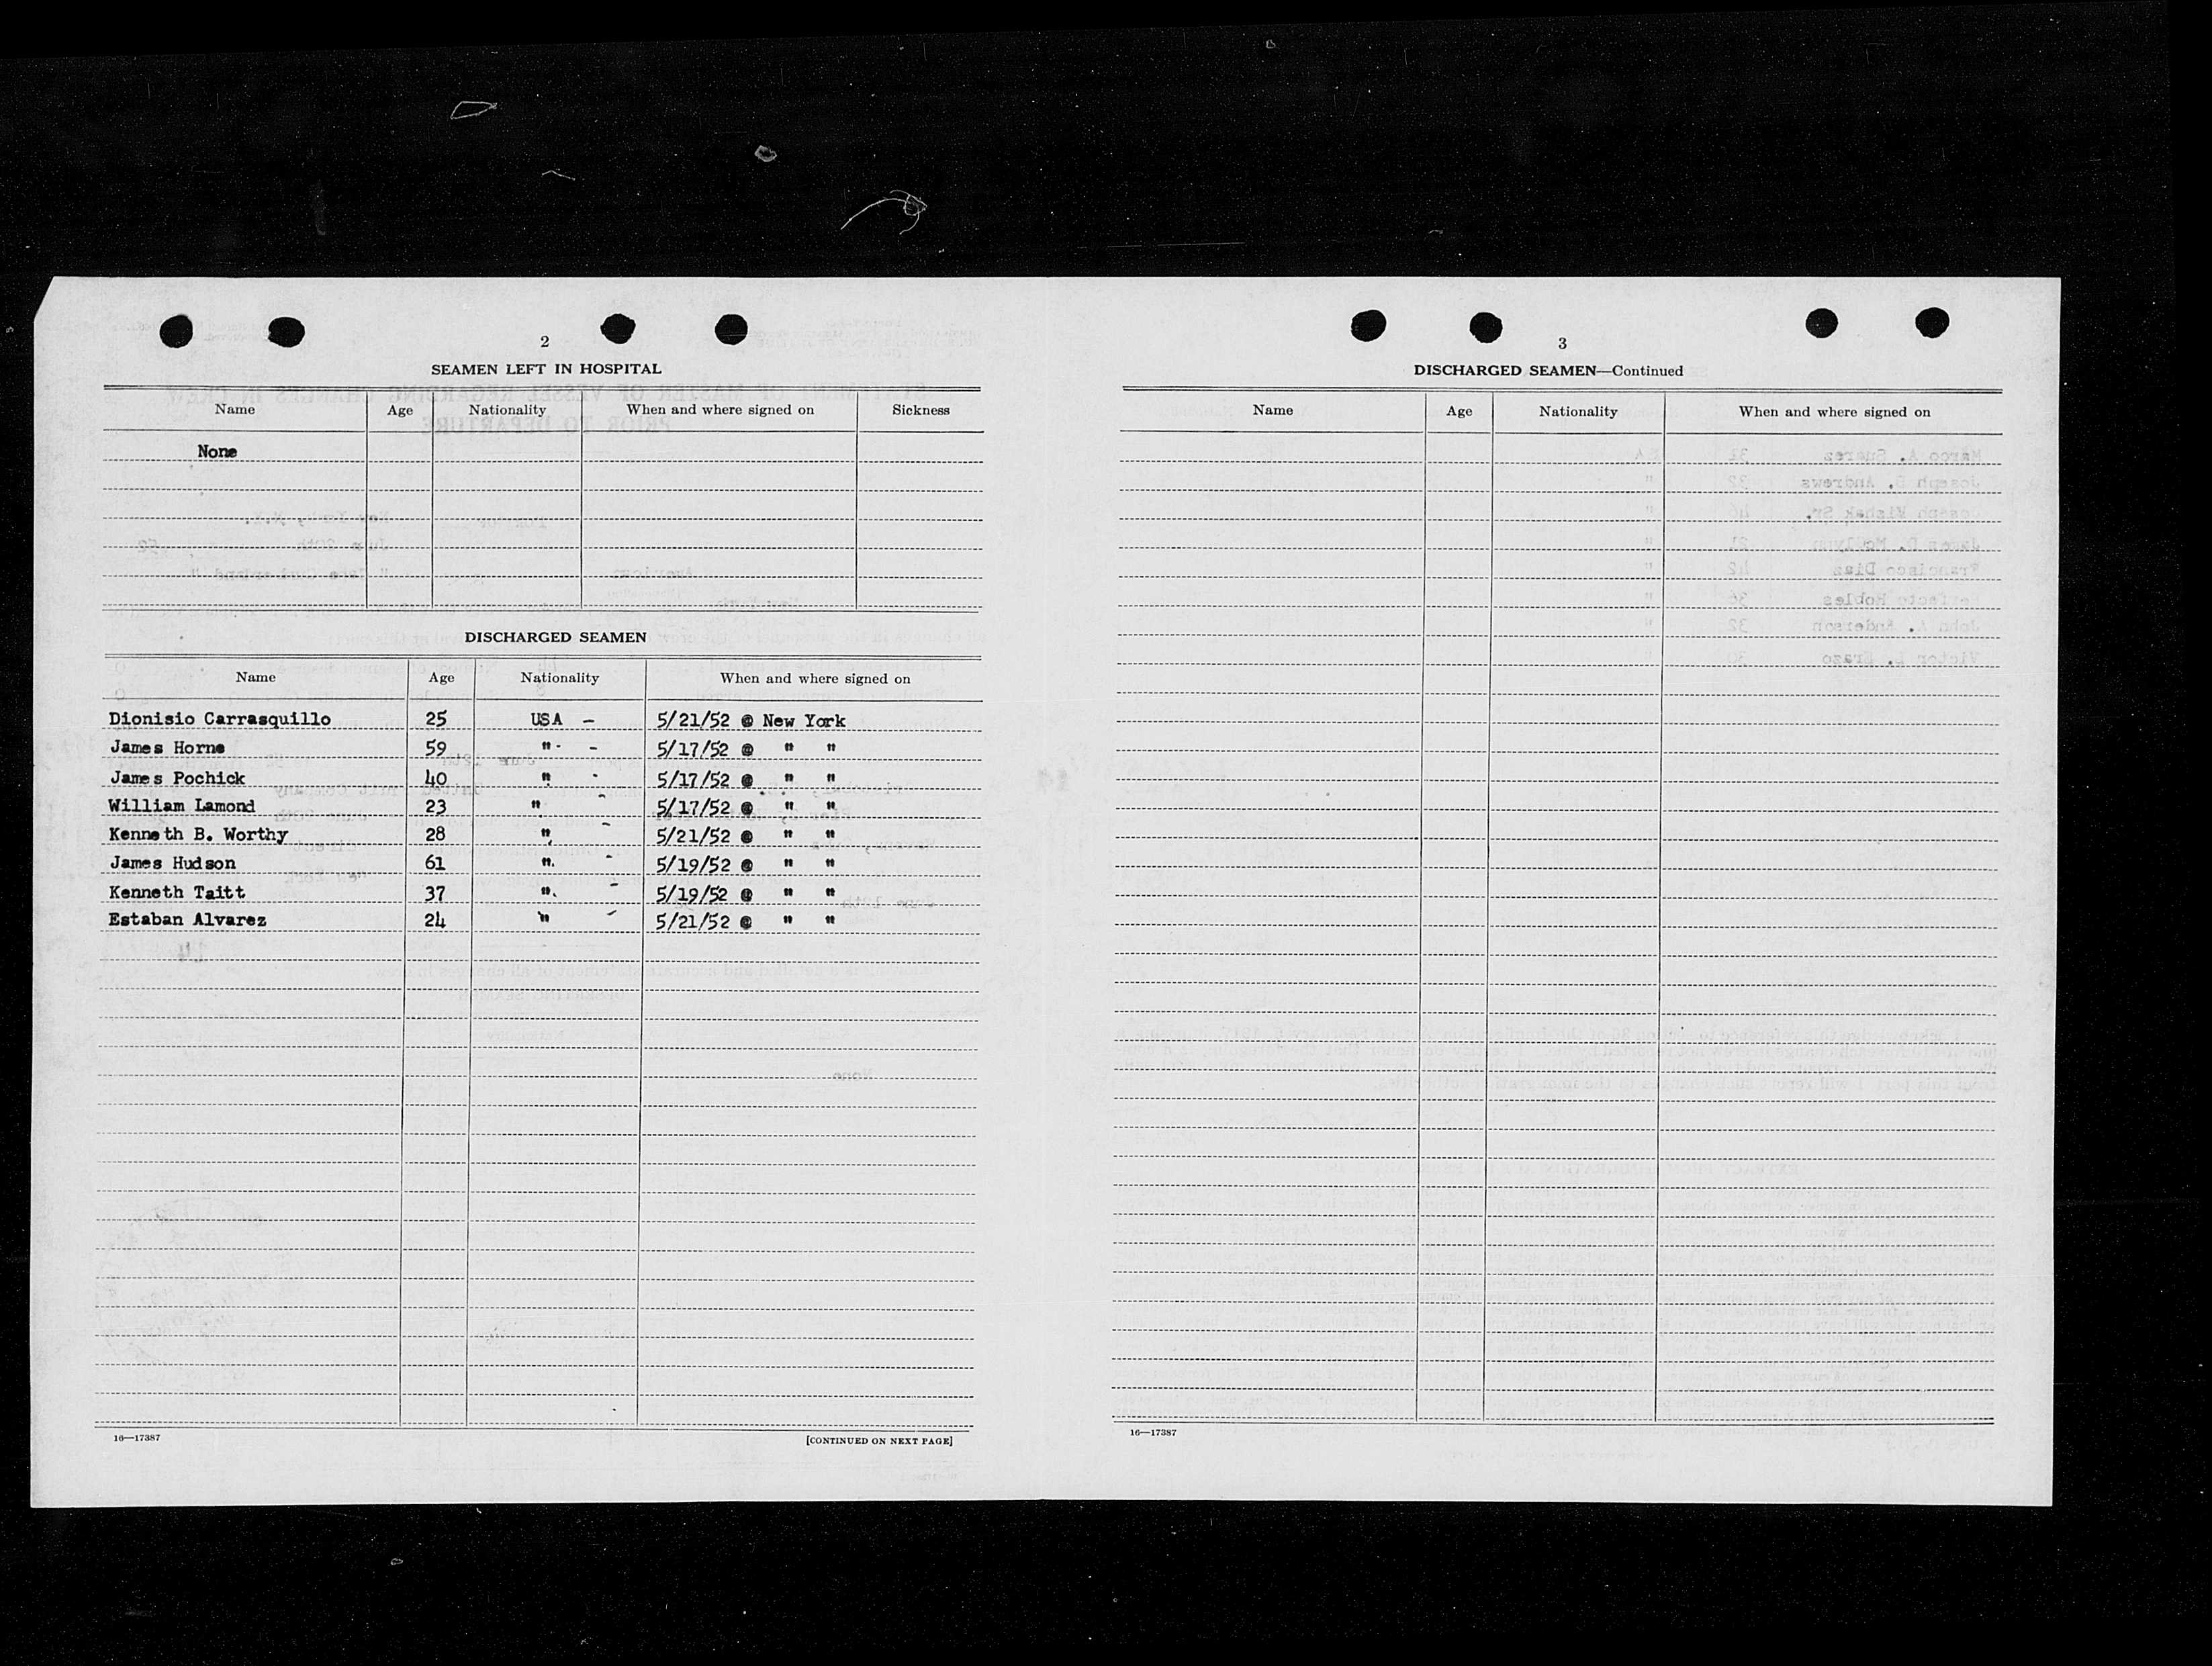 2
SEAMEN LEFT IN HOSPITAL
Name Age Nationality When and where signed on Sickness
None
DISCHARGED SEAMEN
Name Age Nationality When and where signed on
Dionisio Carrasquillo 25 USA - 5/21/52 @ New York
James Horne 59 " - 5/17/52 @ " "
James Pochick 40 " - 5/17/52 @ " "
William Lamond 23 " - 5/17/52 @ " "
Kenneth B. Worthy 28 " - 5/21/52 @ " "
James Hudson 61 " - 5/19/52 @ " "
Kenneth Taitt 37 " - 5/19/52 @ " "
Estaban Alvarez 24 " - 5/21/52 @ " "
16—17387 [CONTINUED ON NEXT PAGE]
3
DISCHARGED SEAMEN—Continued
Name Age Nationality When and where signed on
16—17387